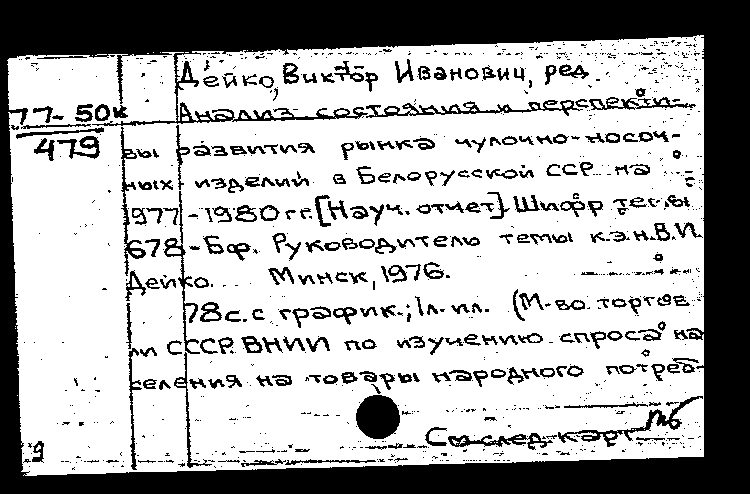 Дейко, Виктор Иванович, ред.
77-50к Анализ состояния и перспекти-
479
вы развития рынка чулочно-носоч-
ных изделий в Белорусской ССР на
1977-1980 гг. [Науч. отчет]. Шифр темы
678-Бф. Руководитель темы к.э.н. В.И.
Дейко. Минск, 1976.
78 с. с график.; 1 л. ил. (М-во торгов
ли СССР. ВНИИ по изучению спроса на
селения на товары народного потреб-
См след. карт
9